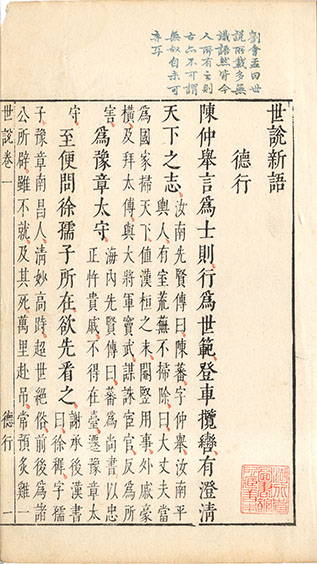 劉會孟曰世
說所載多無
識語然皆今
人所有之則
古亦不可謂
無奴自
棄耳
世說新語
德行
陳仲舉言為士則行為世範登車攬轡有澄清
天下之志汝南先賢傳曰陳蕃字仲舉汝南平
輿人有室荒蕪不掃除曰大丈夫當
為國家掃天下值漢桓之末閹豎用事外戚豪
橫及拜太傅與大將軍竇武謀誅宦官反為所
害為豫章太守海內先賢傳曰蕃為尚書以忠
正忤貴戚不得在臺遷豫章太
守至便問徐孺子所在欲先看之謝承後漢書
曰徐穉字孺
子豫章南昌人清妙高跱超世絕俗前後為諸
公所辟雖不就及其死萬里赴弔常預炙雞一
世說卷一 德行 一